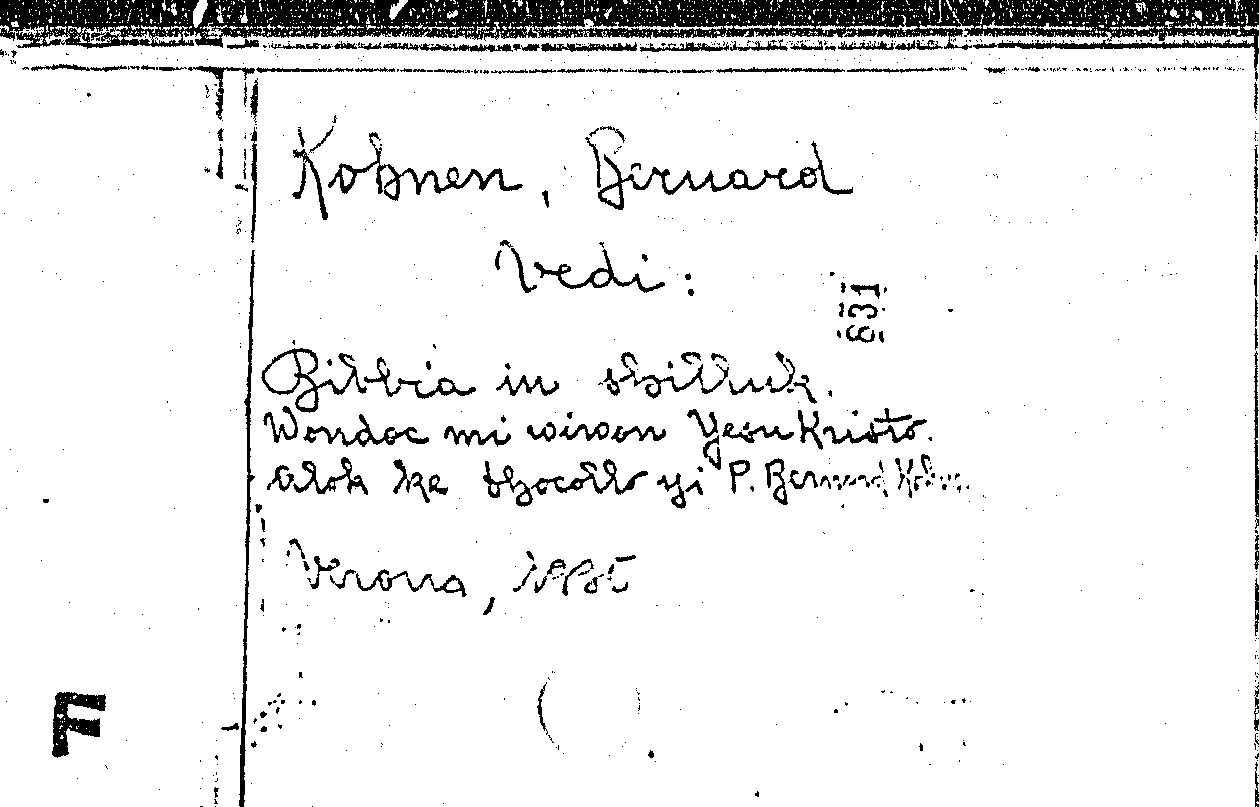 Kohnen, Bernard
Vedi:
631
Bibbia in shilluk.
Wondoc mi wiwon Yesu Kristo.
alok ke thocollo yi P. Bernard Kohnen
Verona,
F